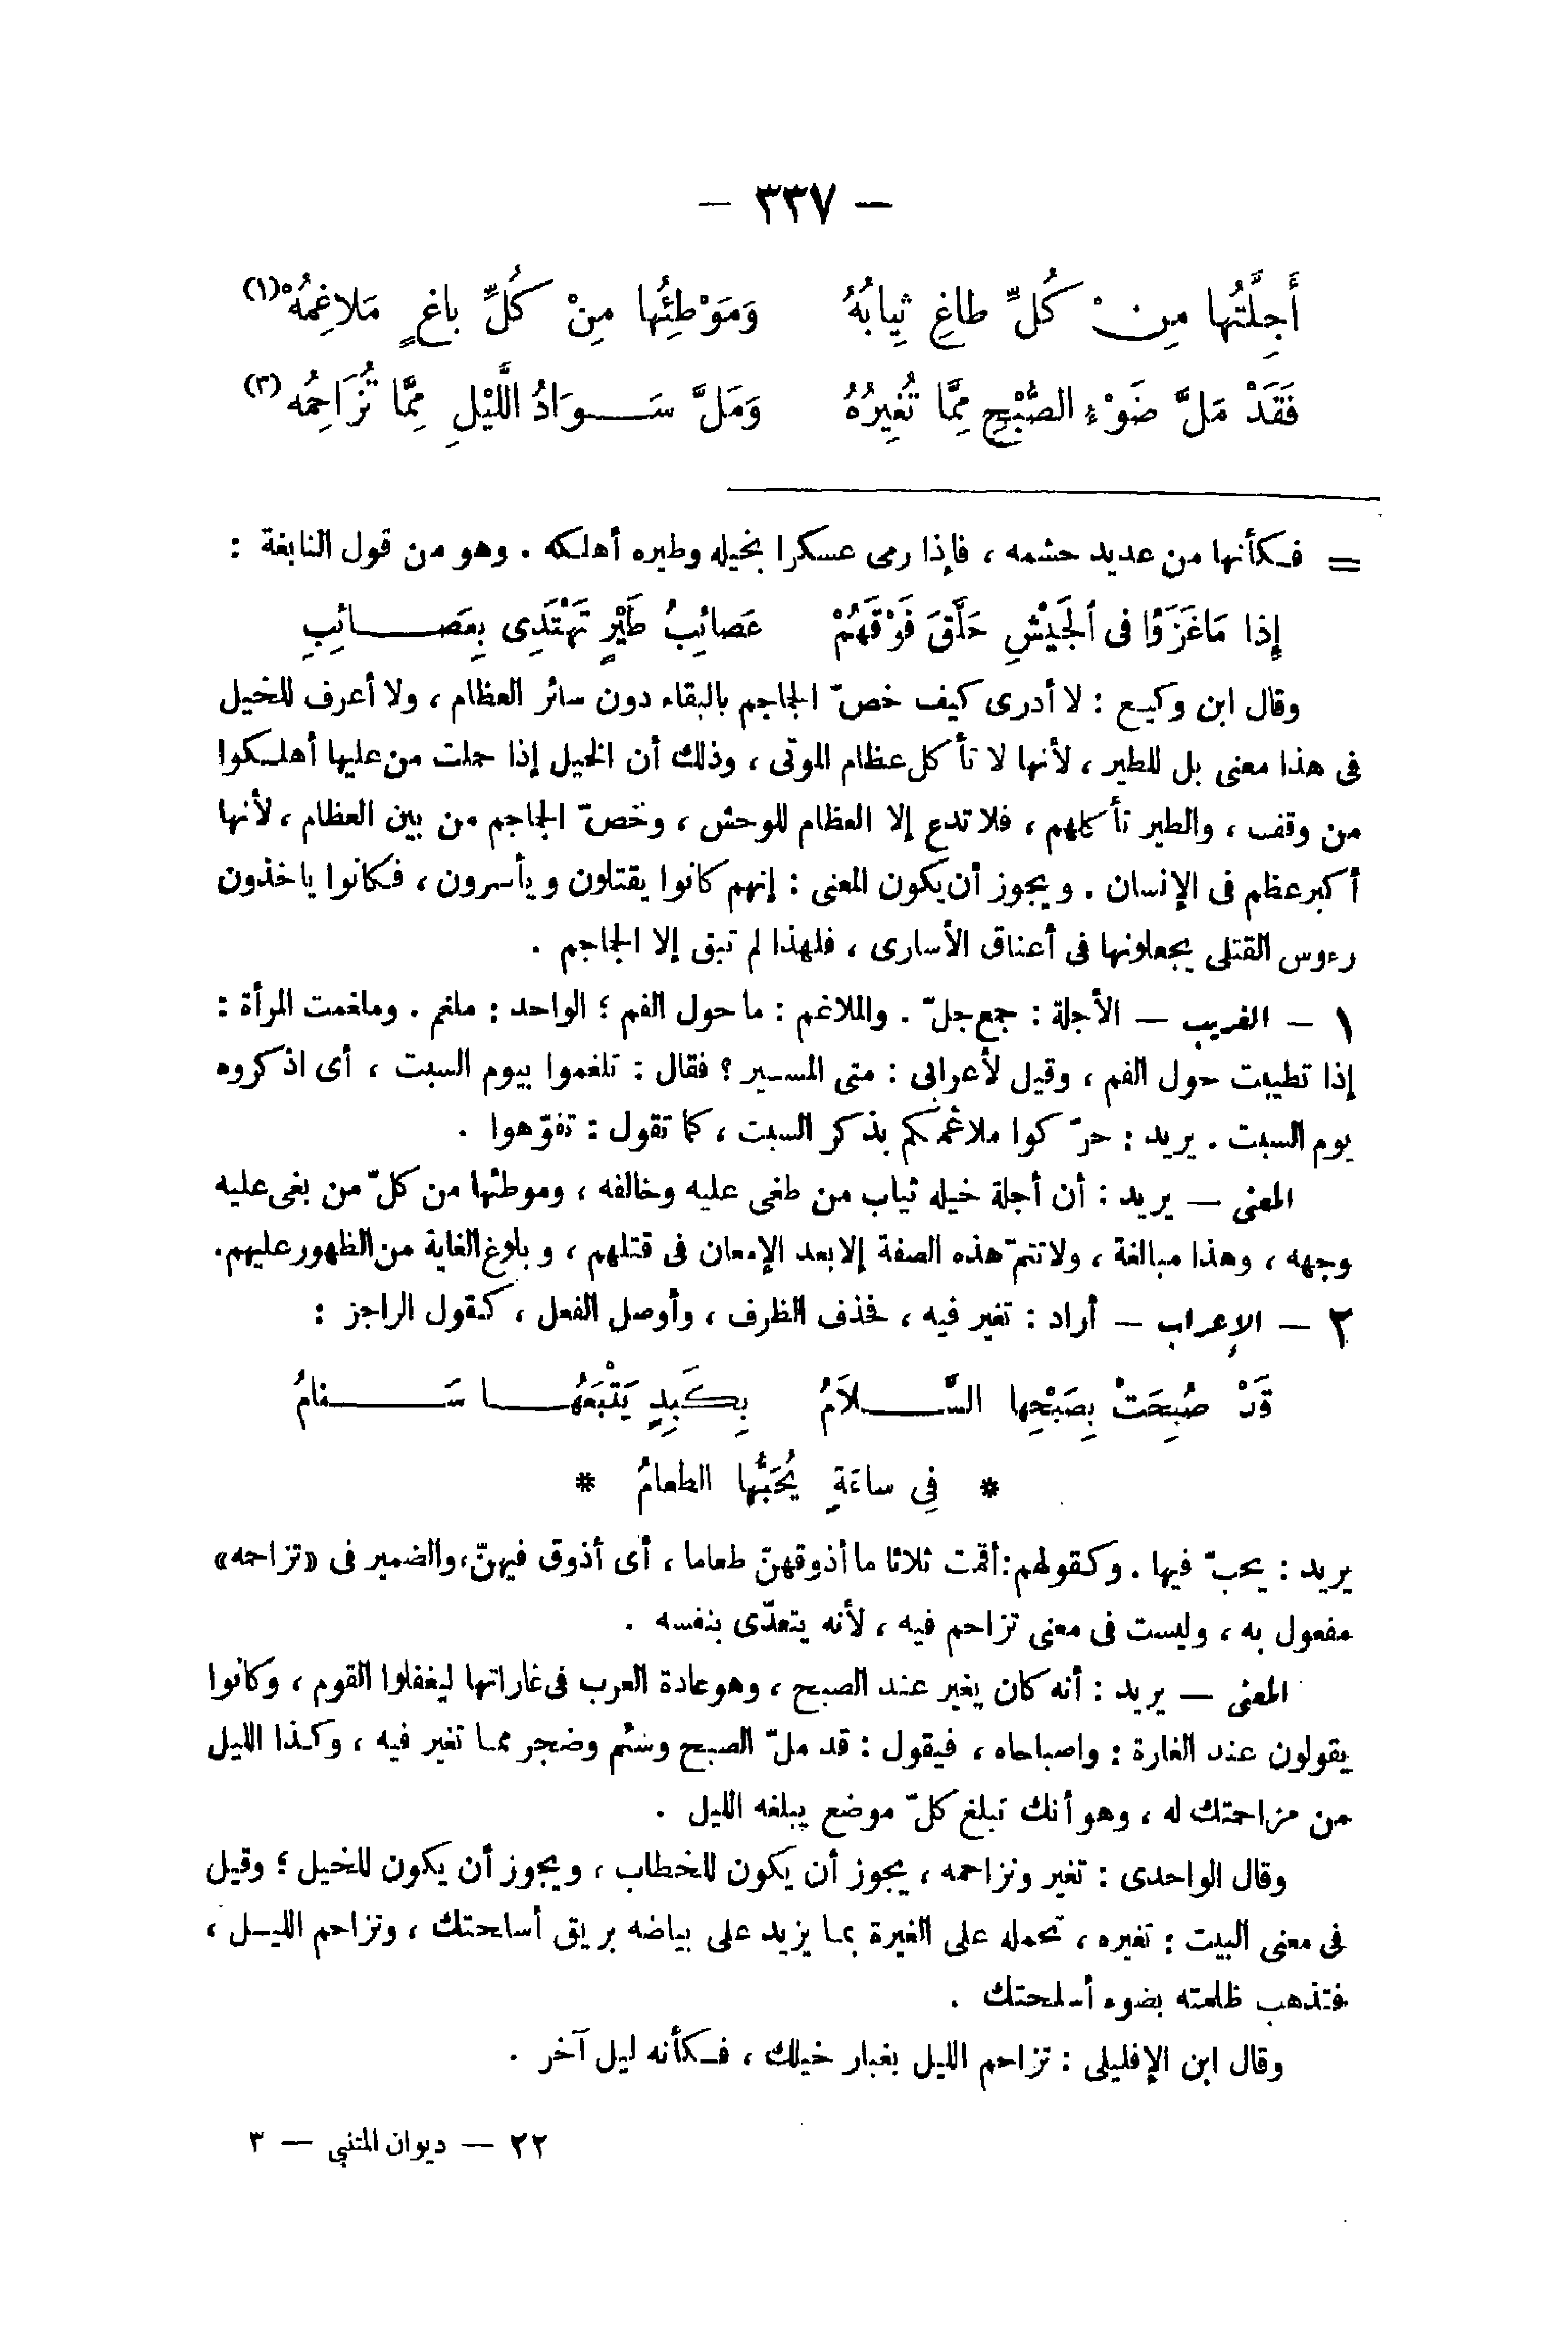 — ٣٣٧ —
أَجِلَّتُها مِنْ كُلِّ طاغٍ ثِيابُهُ وَمَوْطِئُها مِنْ كُلِّ باغٍ مَلاغِمُهْ (١)
فَقَدْ مَلَّ ضَوْءُ الصُّبْحِ مِمَّا تُغِيرُهُ وَمَلَّ سَوَادُ اللَّيْلِ مِمَّا تُزَاحِمُه (٢)
= فكأنها من عديد حشمه ، فإذا رمى عسكرا بخيله وطيره أهلكه . وهو من قول النابغة :
إِذا مَاغَزَوْا فى الجَيْشِ حَلَّقَ فَوْقَهُمْ عَصائِبُ طَيْرٍ تَهْتَدِى بِعَصائِبِ
وقال ابن وكيع : لا أدرى كيف خصّ الجماجم بالبقاء دون سائر العظام ، ولا أعرف للخيل
فى هذا معنى بل للطير ، لأنها لا تأكل عظام الموتى ، وذلك أن الخيل إذا حملت من عليها أهلكوا
من وقف ، والطير تأكلهم ، فلا تدع إلا العظام للوحش ، وخصّ الجماجم من بين العظام ، لأنها
أكبر عظم فى الإنسان . ويجوز أن يكون المعنى : إنهم كانوا يقتلون ويأسرون ، فكانوا ياخذون
رءوس القتلى يجعلونها فى أعناق الأسارى ، فلهذا لم تبق إلا الجماجم .
١ — الغريب — الأجلة : جمع جلّ . والملاغم : ما حول الفم ؛ الواحد : ملغم . وملغمت المرأة :
إذا تطيبت حول الفم ، وقيل لأعرابى : متى المسير ؟ فقال : تلغموا بيوم السبت ، أى اذكروه
يوم السبت . يريد : حرّكوا ملاغمكم بذكر السبت ، كما تقول : تفوّهوا .
المعنى — يريد : أن أجلة خيله ثياب من طغى عليه وخالفه ، وموطئها من كلّ من بغى عليه
وجهه ، وهذا مبالغة ، ولاتتمّ هذه الصفة إلا بعد الإمعان فى قتلهم ، وبلوغ الغاية من الظهور عليهم.
٢ — الإعراب — أراد : تغير فيه ، فحذف الظرف ، وأوصل الفعل ، كقول الراجز :
قَدْ صُبِحَتْ بِصَبْحِها السَّلاَمُ بِكَبِدٍ يَتْبَعُها سَنامُ
* فِي ساعَةٍ يُحَبُّها الطعامُ *
يريد : يحبّ فيها . وكقولهم : أقمت ثلاثا ما أذوقهنّ طعاما ، أى أذوق فيهنّ، والضمير فى «تزاحمه»
مفعول به ، وليست فى معنى تزاحم فيه ، لأنه يتعدّى بنفسه .
المعنى — يريد : أنه كان يغير عند الصبح ، وهو عادة العرب فى غاراتها ليغفلوا القوم ، وكانوا
يقولون عند الغارة : واصباحاه ، فيقول : قد ملّ الصبح وسئم وضجر مما تغير فيه ، وكذا الليل
من مزاحمتك له ، وهو أنك تبلغ كلّ موضع يبلغه الليل .
وقال الواحدى : تغير وتزاحمه ، يجوز أن يكون للخطاب ، ويجوز أن يكون للخيل ؛ وقيل
فى معنى البيت : تغيره ، تحمله على الغيرة بما يزيد على بياضه بريق أسلحتك ، وتزاحم الليل ،
فتذهب ظلمته بضوء أسلحتك .
وقال ابن الإفليلى : تزاحم الليل بغبار خيلك ، فكأنه ليل آخر .
٢٢ — ديوان المتنبي — ٣